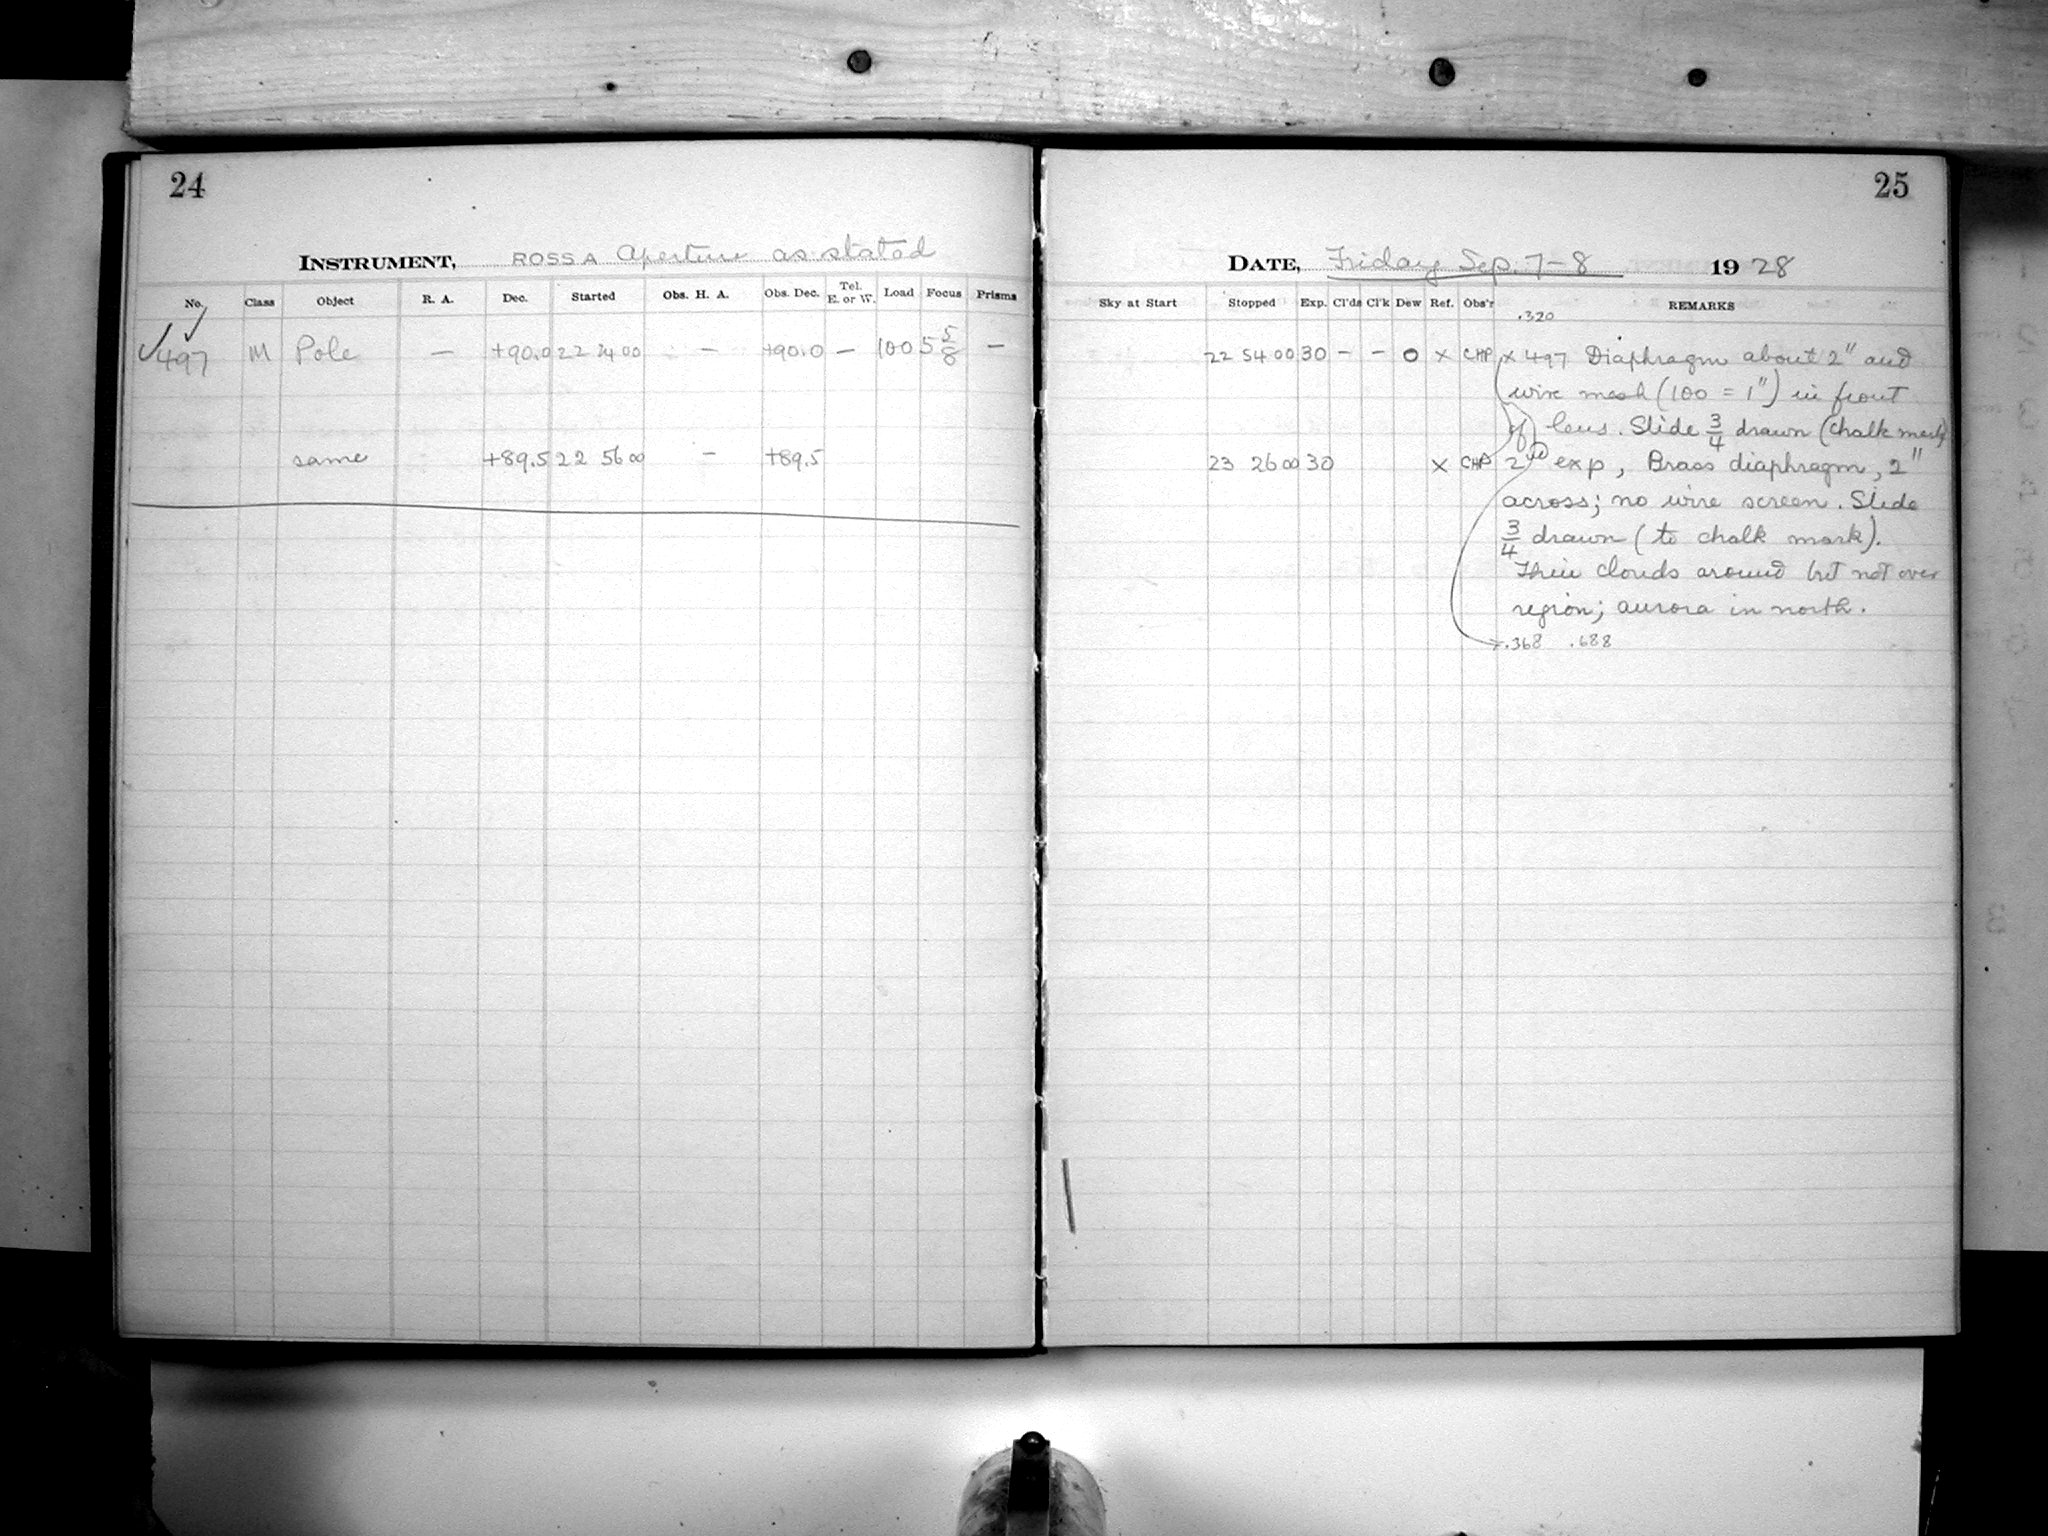 24
INSTRUMENT, ROSS A Aperture as stated
No. Class Object R. A. Dec. Started Obs. H. A. Obs. Dec. Tel. E. or W. Load Focus Prisms
497 M Pole — +90.0 22 24 00 — +90.0 — 100 5 5/8 —
same +89.5 22 56 00 — +89.5
25
DATE, Friday Sep. 7-8 1928
Sky at Start Stopped Exp. Cl'ds Cl'k Dew Ref. Obs'r REMARKS
.320
22 54 00 30 - - 0 x CHP x 497 Diaphragm about 2" and
wire mesh (100 = 1") in front
of lens. Slide 3/4 drawn (chalk mark)
23 26 00 30 x CHP 2nd exp, Brass diaphragm, 2"
across; no wire screen. Slide
3/4 drawn (to chalk mark).
Thin clouds around but not over
region; aurora in north.
.368 .688